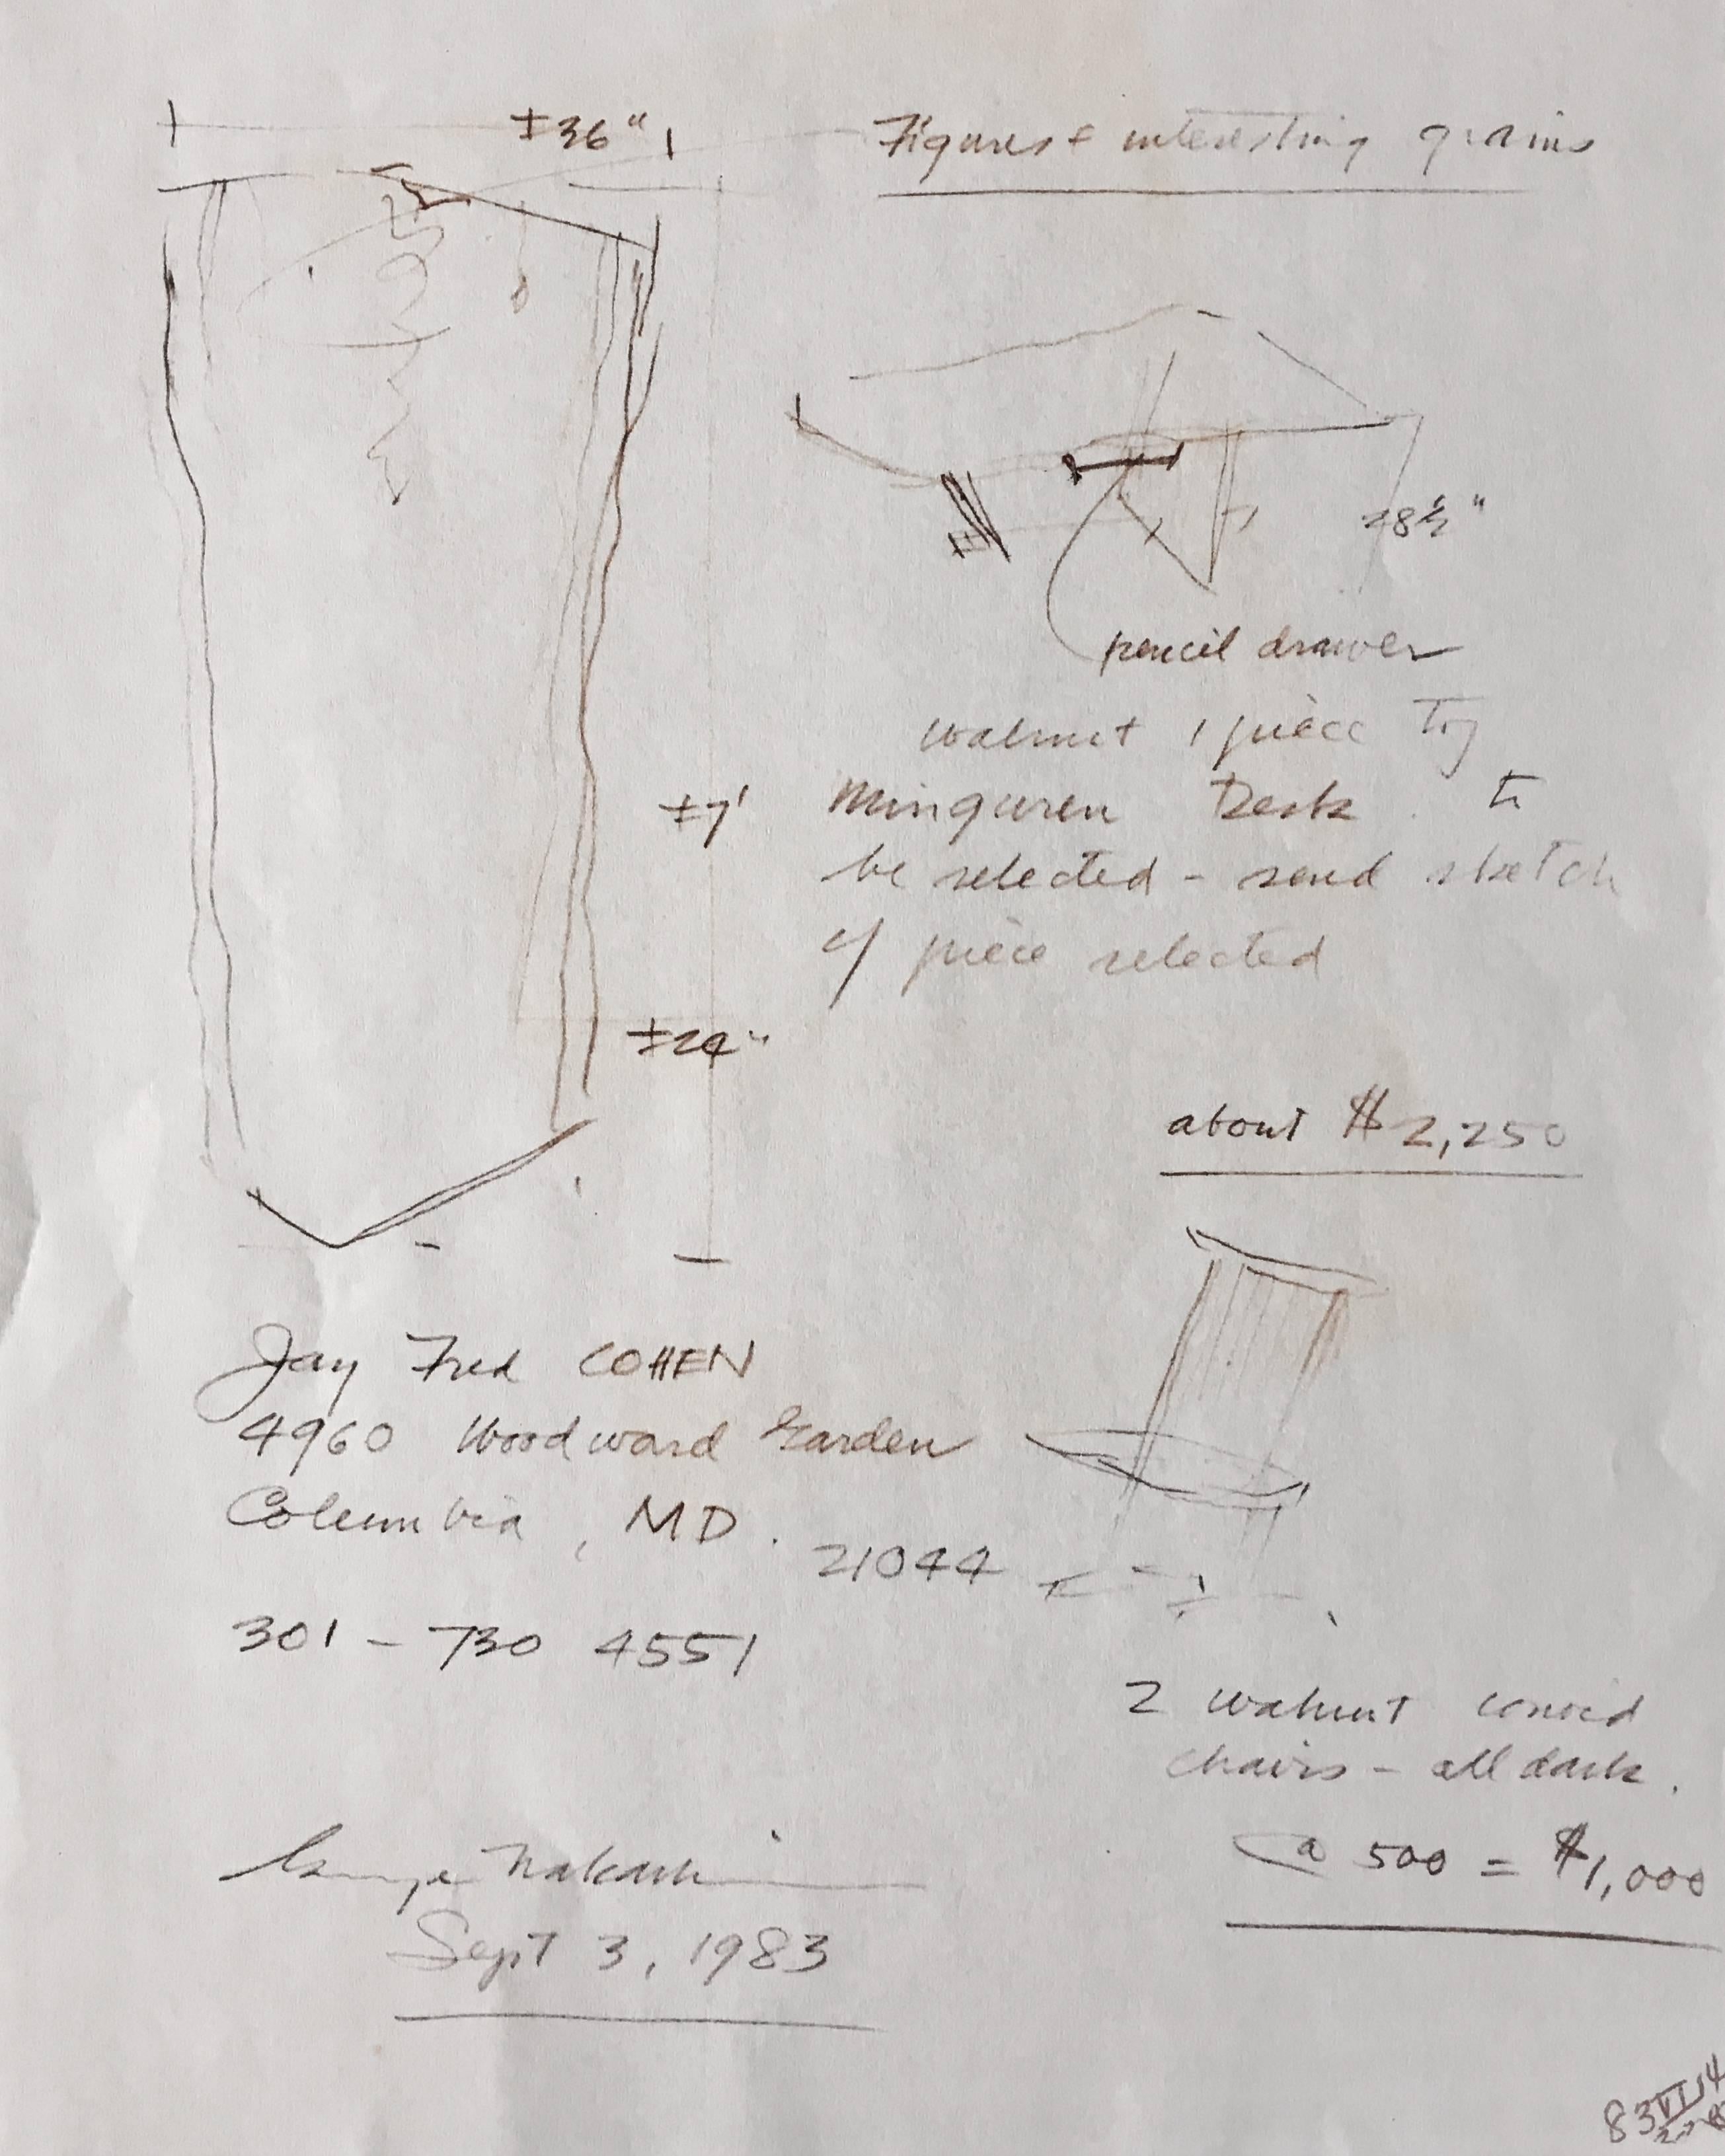 ±36"
Figures & interesting grains
28½"
pencil drawer
walnut 1 piece Top
Minguren Desk. to
be selected - send sketch
of piece selected
±7'
±24"
about $2,250
Jay Fred COHEN
4960 Woodward Garden
Columbia, MD.
21044
301 - 730 4551
2 walnut conoid
chairs - all dark.
@ 500 = $1,000
George Nakashima
Sept 3, 1983
83 VI 14